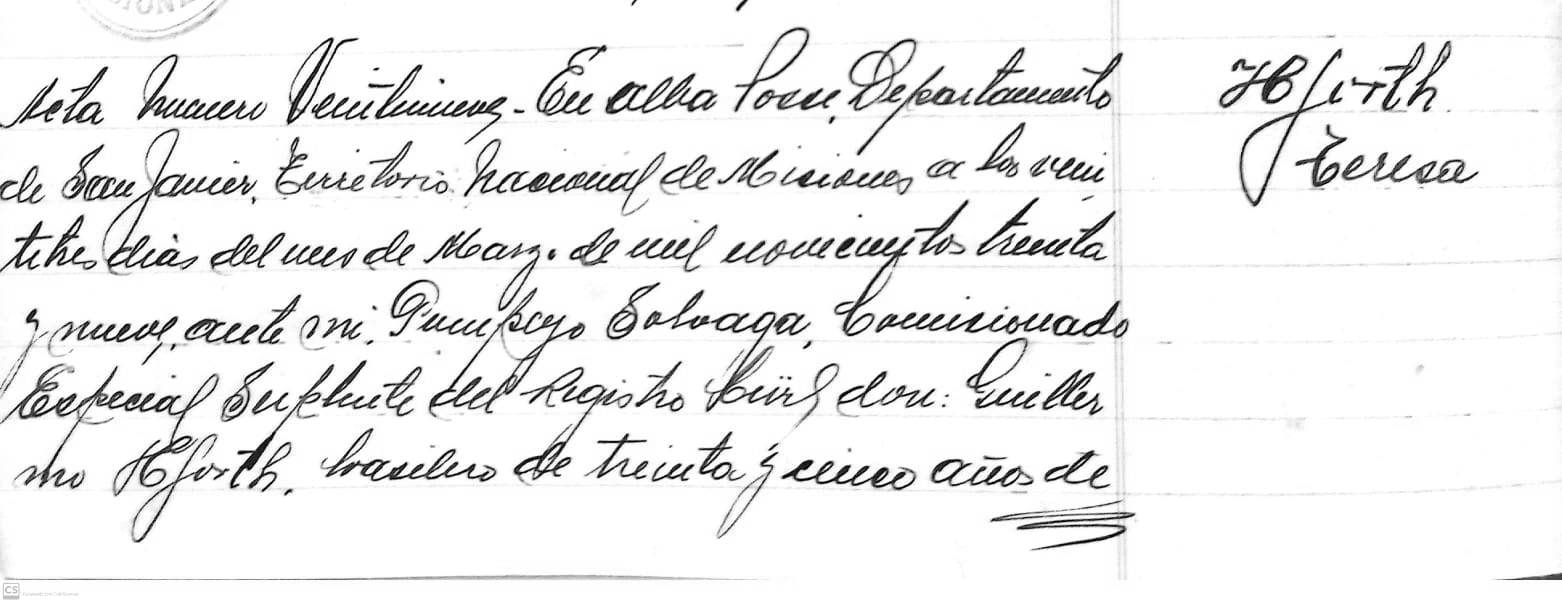 Acta Numero Veintinueve - En Alba Posse, Departamento
de San Javier, Territorio Nacional de Misiones a los vein
titres dias del mes de Marzo de mil novecientos treinta
y nueve, ante mi, Pumpeyo Solvaga, Comisionado
Especial Suplente del Registro Civil don: Guiller
mo Hjorth, brasilero de treinta y cinco años de
Hjorth
Teresa
CS